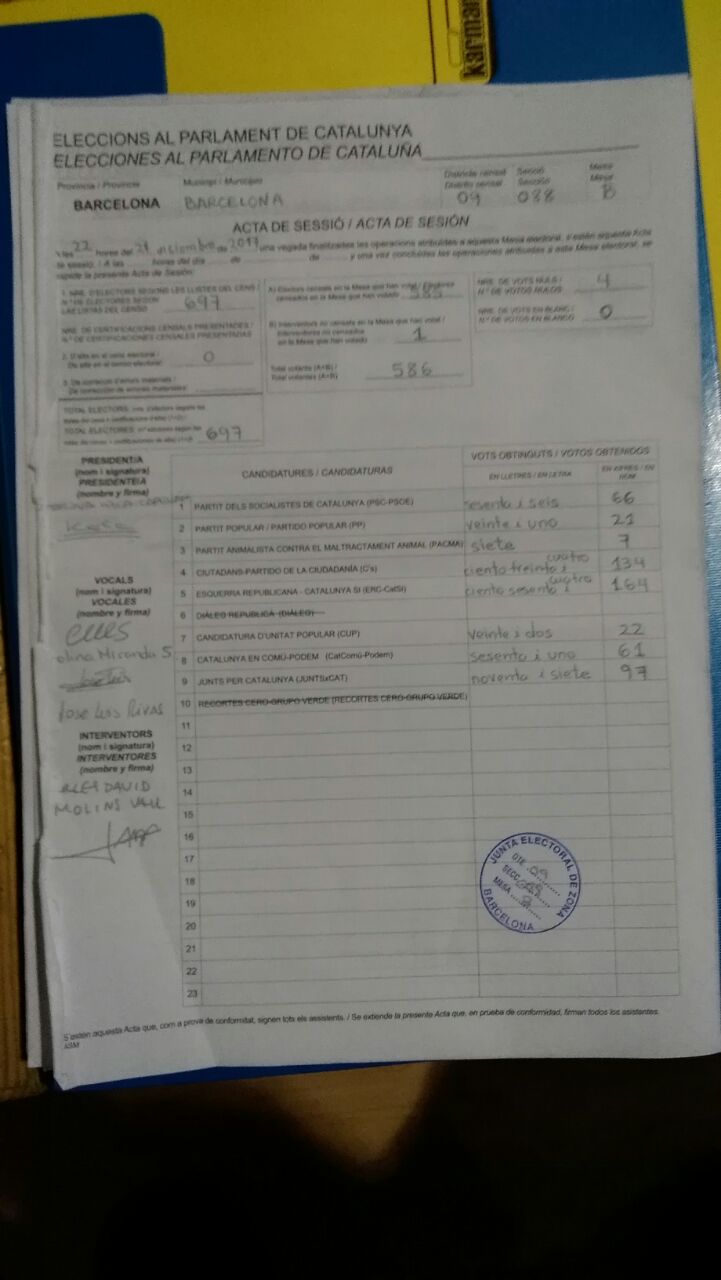 karmar
ELECCIONS AL PARLAMENT DE CATALUNYA
ELECCIONES AL PARLAMENTO DE CATALUÑA
Provincia / Provincia Municipi / Municipio Districte censal Secció Mesa
Distrito censal Sección Mesa
BARCELONA BARCELONA 09 038 B
ACTA DE SESSIÓ / ACTA DE SESIÓN
A les 22 hores del 21 diciembre de 2017 una vegada finalitzades les operacions atribuïdes a aquesta Mesa electoral, s'estén aquesta Acta
de sessió. / A las horas del día de de y una vez concluidas las operaciones atribuidas a esta Mesa electoral, se
expide la presente Acta de Sesión.
1. NRE. D'ELECTORS SEGONS LES LLISTES DEL CENS /
N.º DE ELECTORES SEGÚN
LAS LISTAS DEL CENSO 697
NRE. DE CERTIFICACIONS CENSALS PRESENTADES /
N.º DE CERTIFICACIONES CENSALES PRESENTADAS
2. D'alta en el cens electoral /
De alta en el censo electoral: 0
3. De correcció d'errors materials /
De corrección de errores materiales:
TOTAL ELECTORS:
TOTAL ELECTORES: 697
A) Electors censats en la Mesa que han votat / Electores
censados en la Mesa que han votado 585
B) Interventors no censats en la Mesa que han votat /
Interventores no censados
en la Mesa que han votado 1
Total votants (A+B) /
Total votantes (A+B) 586
NRE. DE VOTS NULS /
N.º DE VOTOS NULOS 4
NRE. DE VOTS EN BLANC /
N.º DE VOTOS EN BLANCO 0
PRESIDENT/A
(nom i signatura)
PRESIDENTE/A
(nombre y firma)
VOCALS
(nom i signatura)
VOCALES
(nombre y firma)
Miranda S
Jose Luis Rivas
INTERVENTORS
(nom i signatura)
INTERVENTORES
(nombre y firma)
ALEX DAVID
MOLINS VALL
CANDIDATURES / CANDIDATURAS VOTS OBTINGUTS / VOTOS OBTENIDOS
EN LLETRES / EN LETRA EN XIFRES / EN NÚM
1 PARTIT DELS SOCIALISTES DE CATALUNYA (PSC-PSOE) sesenta i seis 66
2 PARTIT POPULAR / PARTIDO POPULAR (PP) veinte i uno 21
3 PARTIT ANIMALISTA CONTRA EL MALTRACTAMENT ANIMAL (PACMA) siete 7
4 CIUTADANS-PARTIDO DE LA CIUDADANÍA (C's) ciento treinta i cuatro 134
5 ESQUERRA REPUBLICANA - CATALUNYA SI (ERC-CatSí) ciento sesenta i cuatro 164
6 DIÀLEG REPUBLICÀ (DIÀLEG)
7 CANDIDATURA D'UNITAT POPULAR (CUP) veinte i dos 22
8 CATALUNYA EN COMÚ-PODEM (CatComú-Podem) sesenta i uno 61
9 JUNTS PER CATALUNYA (JUNTSxCAT) noventa i siete 97
10 RECORTES CERO-GRUPO VERDE (RECORTES CERO-GRUPO VERDE)
11
12
13
14
15
16
17
18
19
20
21
22
23
JUNTA ELECTORAL DE ZONA
DTE. 09
SECC.
MESA
BARCELONA
S'estén aquesta Acta que, com a prova de conformitat, signen tots els assistents. / Se extiende la presente Acta que, en prueba de conformidad, firman todos los asistentes.